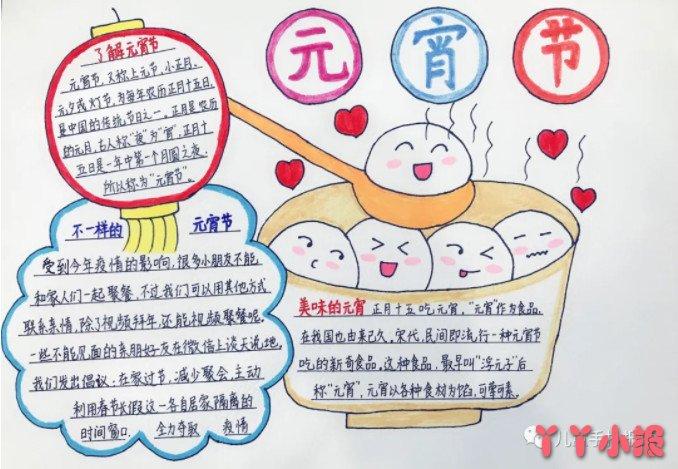 元 宵 节
了解元宵节
元宵节,又称上元节,小正月,
元夕或灯节,为每年农历正月十五日,
是中国的传统节日之一。正月是农历
的元月,古人称"夜"为"宵",正月十
五日是一年中第一个月圆之夜,
所以称为"元宵节"。
不一样的 元宵节
受到今年疫情的影响,很多小朋友不能
和家人们一起聚餐,不过我们可以用其他方式
联系亲情,除了视频拜年,还能视频聚餐呢。
一些不能见面的亲朋好友在微信上谈天说地。
我们发出倡议:在家过节,减少聚会,主动
利用春节长假这一各自居家隔离的
时间窗口, 全力夺取 疫情
美味的元宵 正月十五吃元宵,"元宵"作为食品,
在我国也由来已久。宋代,民间即流行一种元宵节
吃的新奇食品。这种食品,最早叫"浮元子"后
称"元宵",元宵以各种食材为馅,可荤可素。
丫丫小报